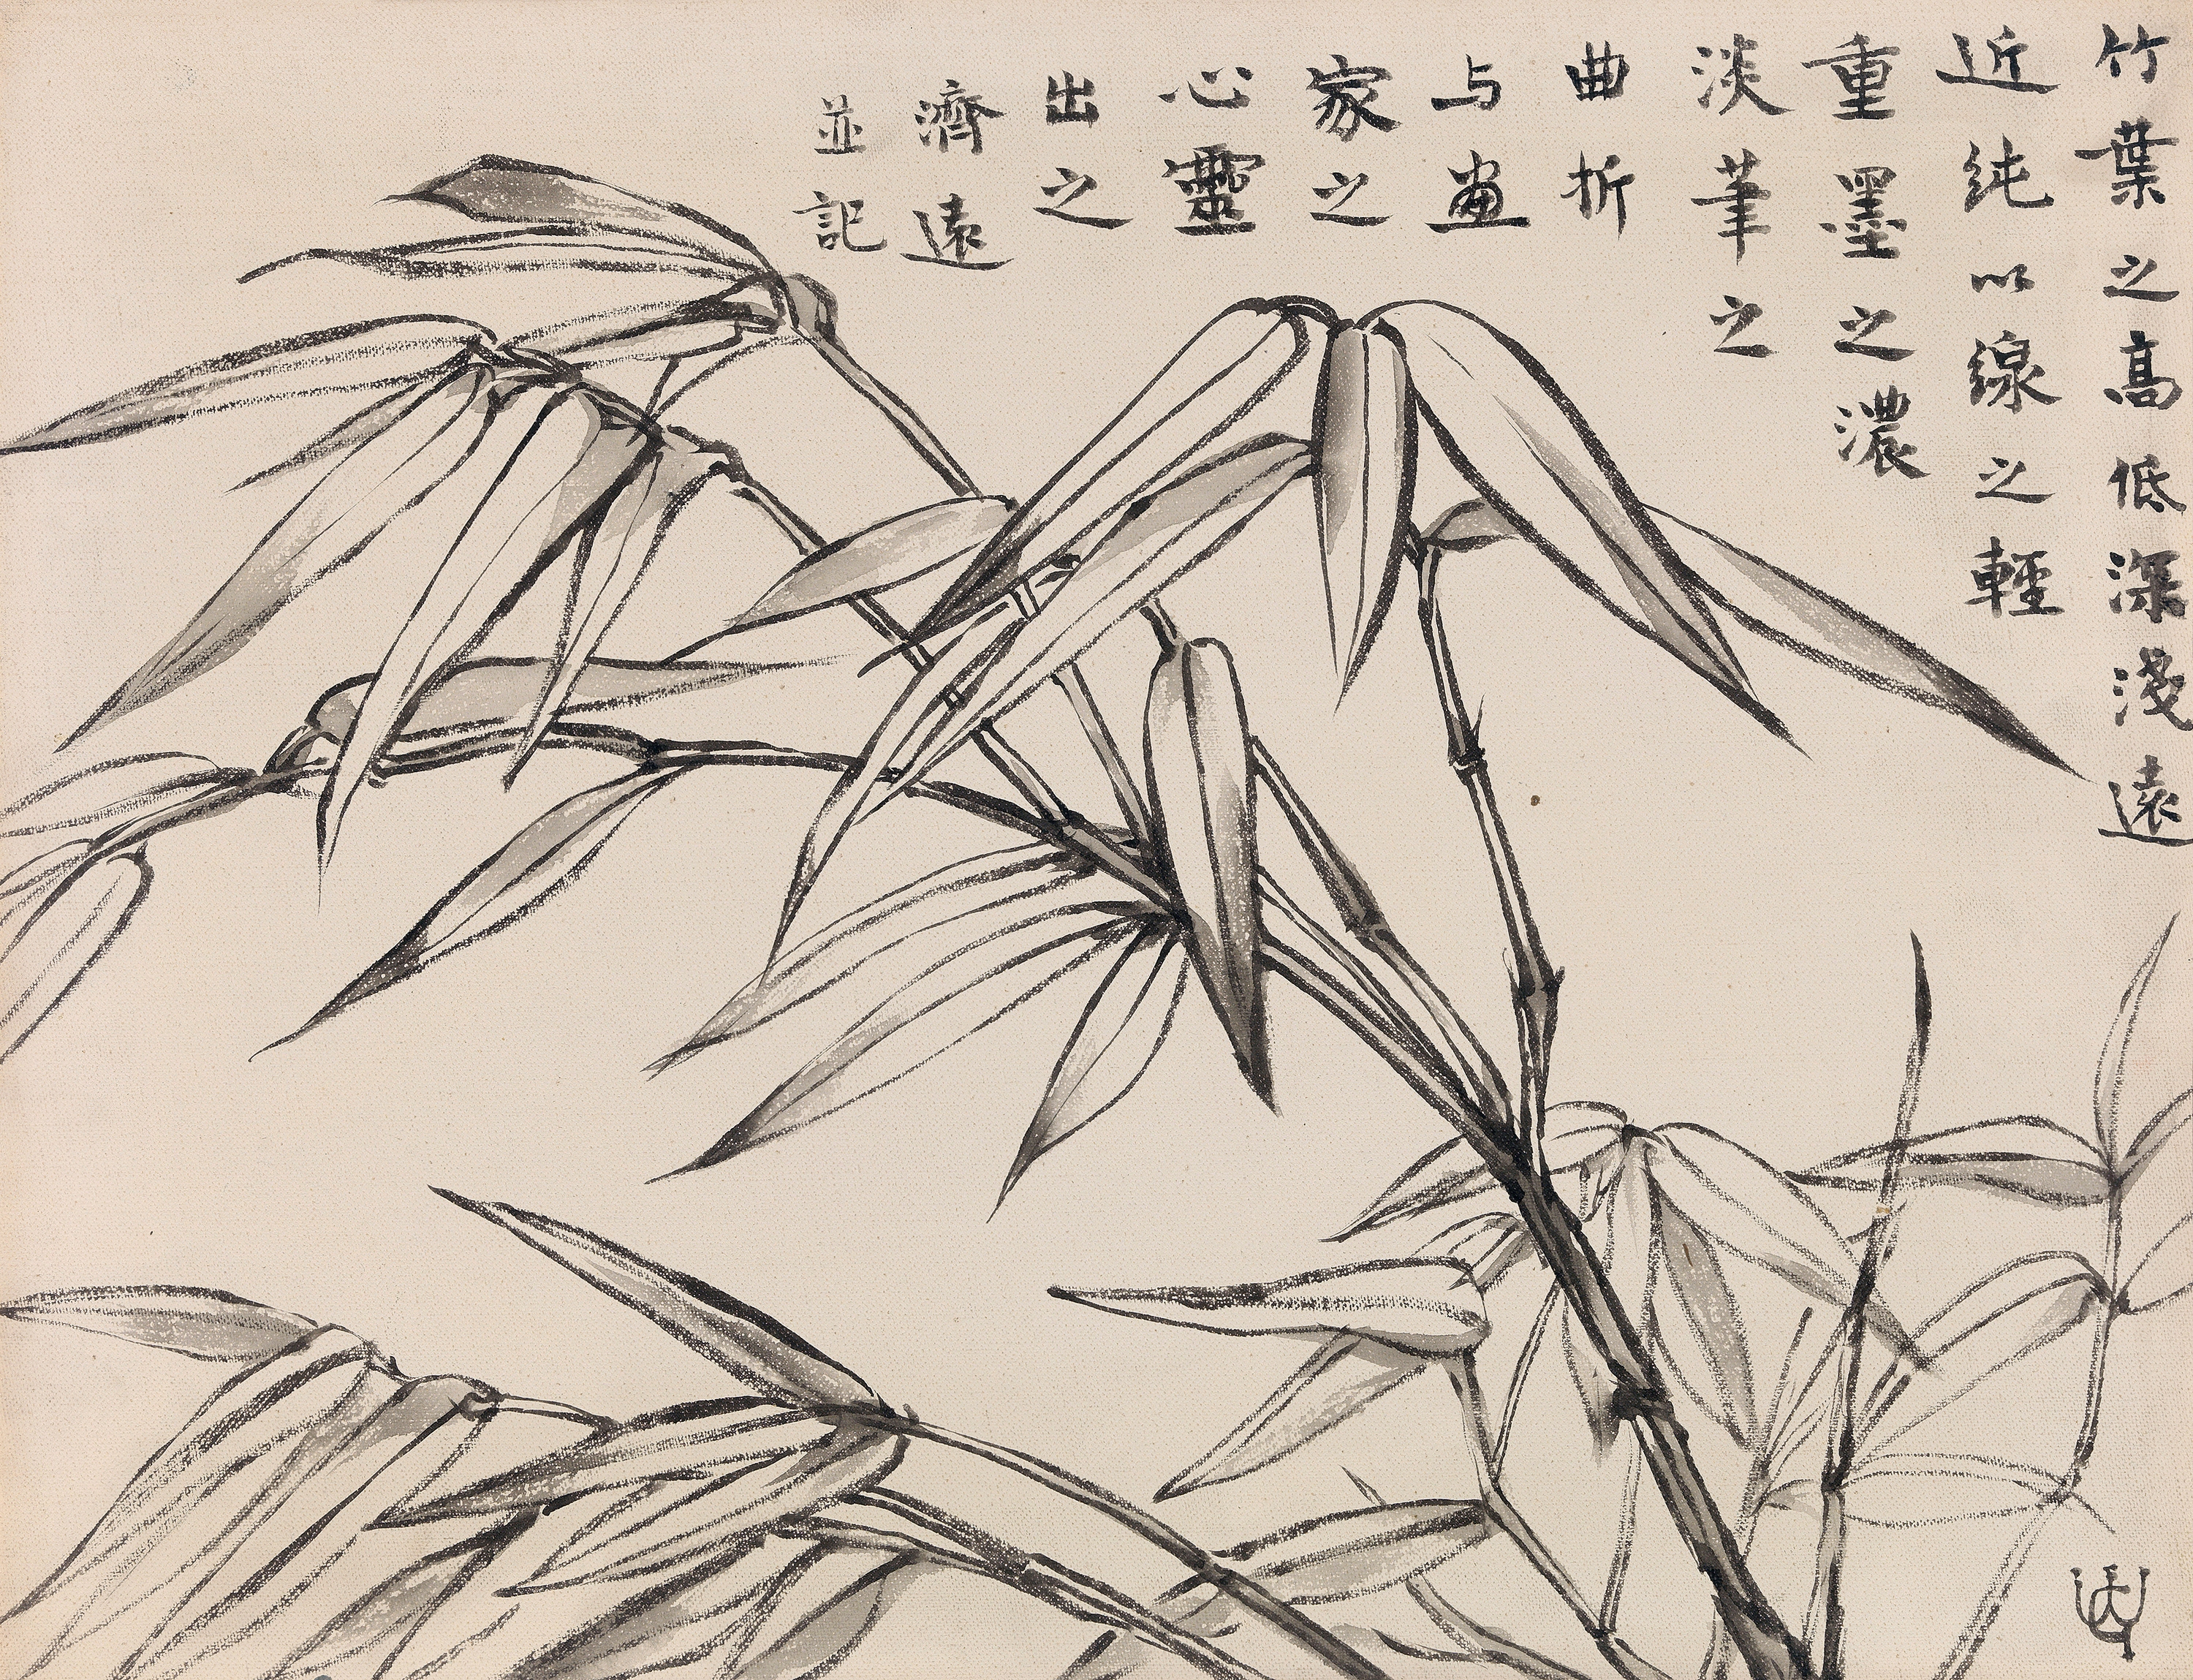 竹葉之高低深淺遠
近純以線之輕
重墨之濃
淡筆之
曲折
与畫
家之
心靈
出之
濟遠
並記